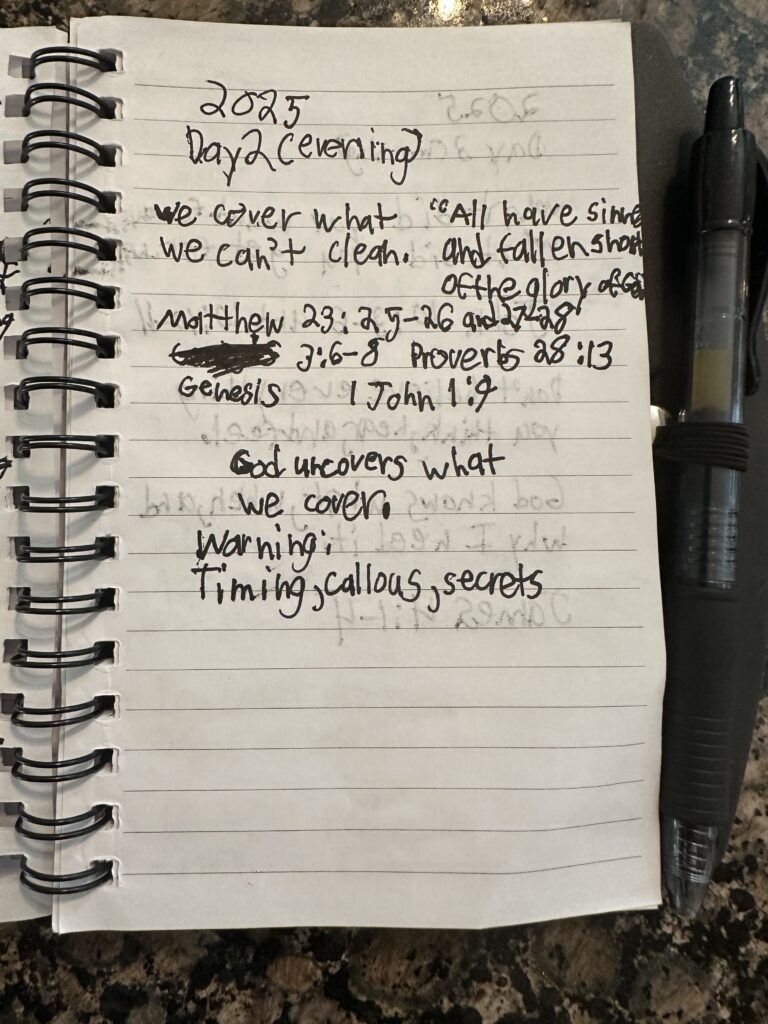 2025
Day 2 (evening)
We cover what "All have sinne
we can't clean. and fallen short
of the glory of God
Matthew 23:25-26 and 27-28
3:6-8 Proverbs 28:13
Genesis 1 John 1:9
God uncovers what
we cover.
Warning:
Timing, callous, secrets